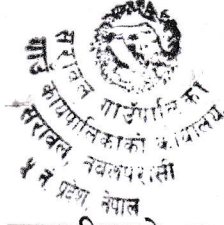 सरावल गाउँपालिका
गाउँ कार्यपालिकाको कार्यालय
सरावल, नवलपरासी
प्रदेश, नेपाल